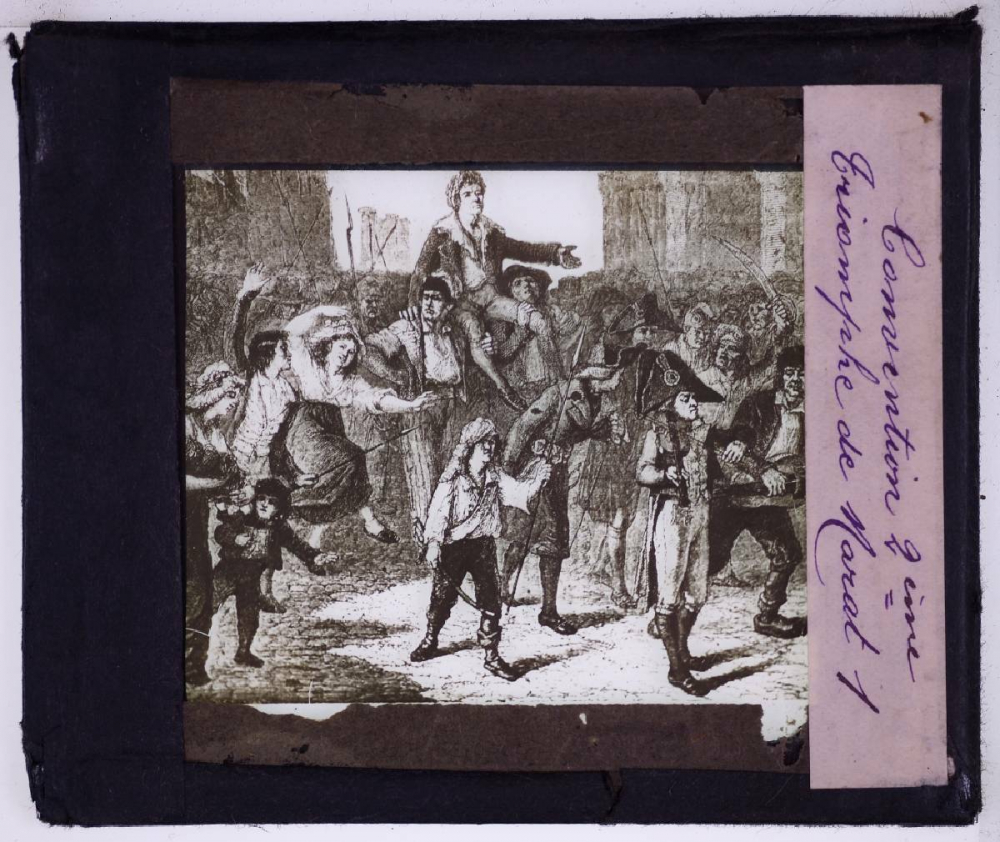 Convention 2 ème
Triomphe de Marat 1